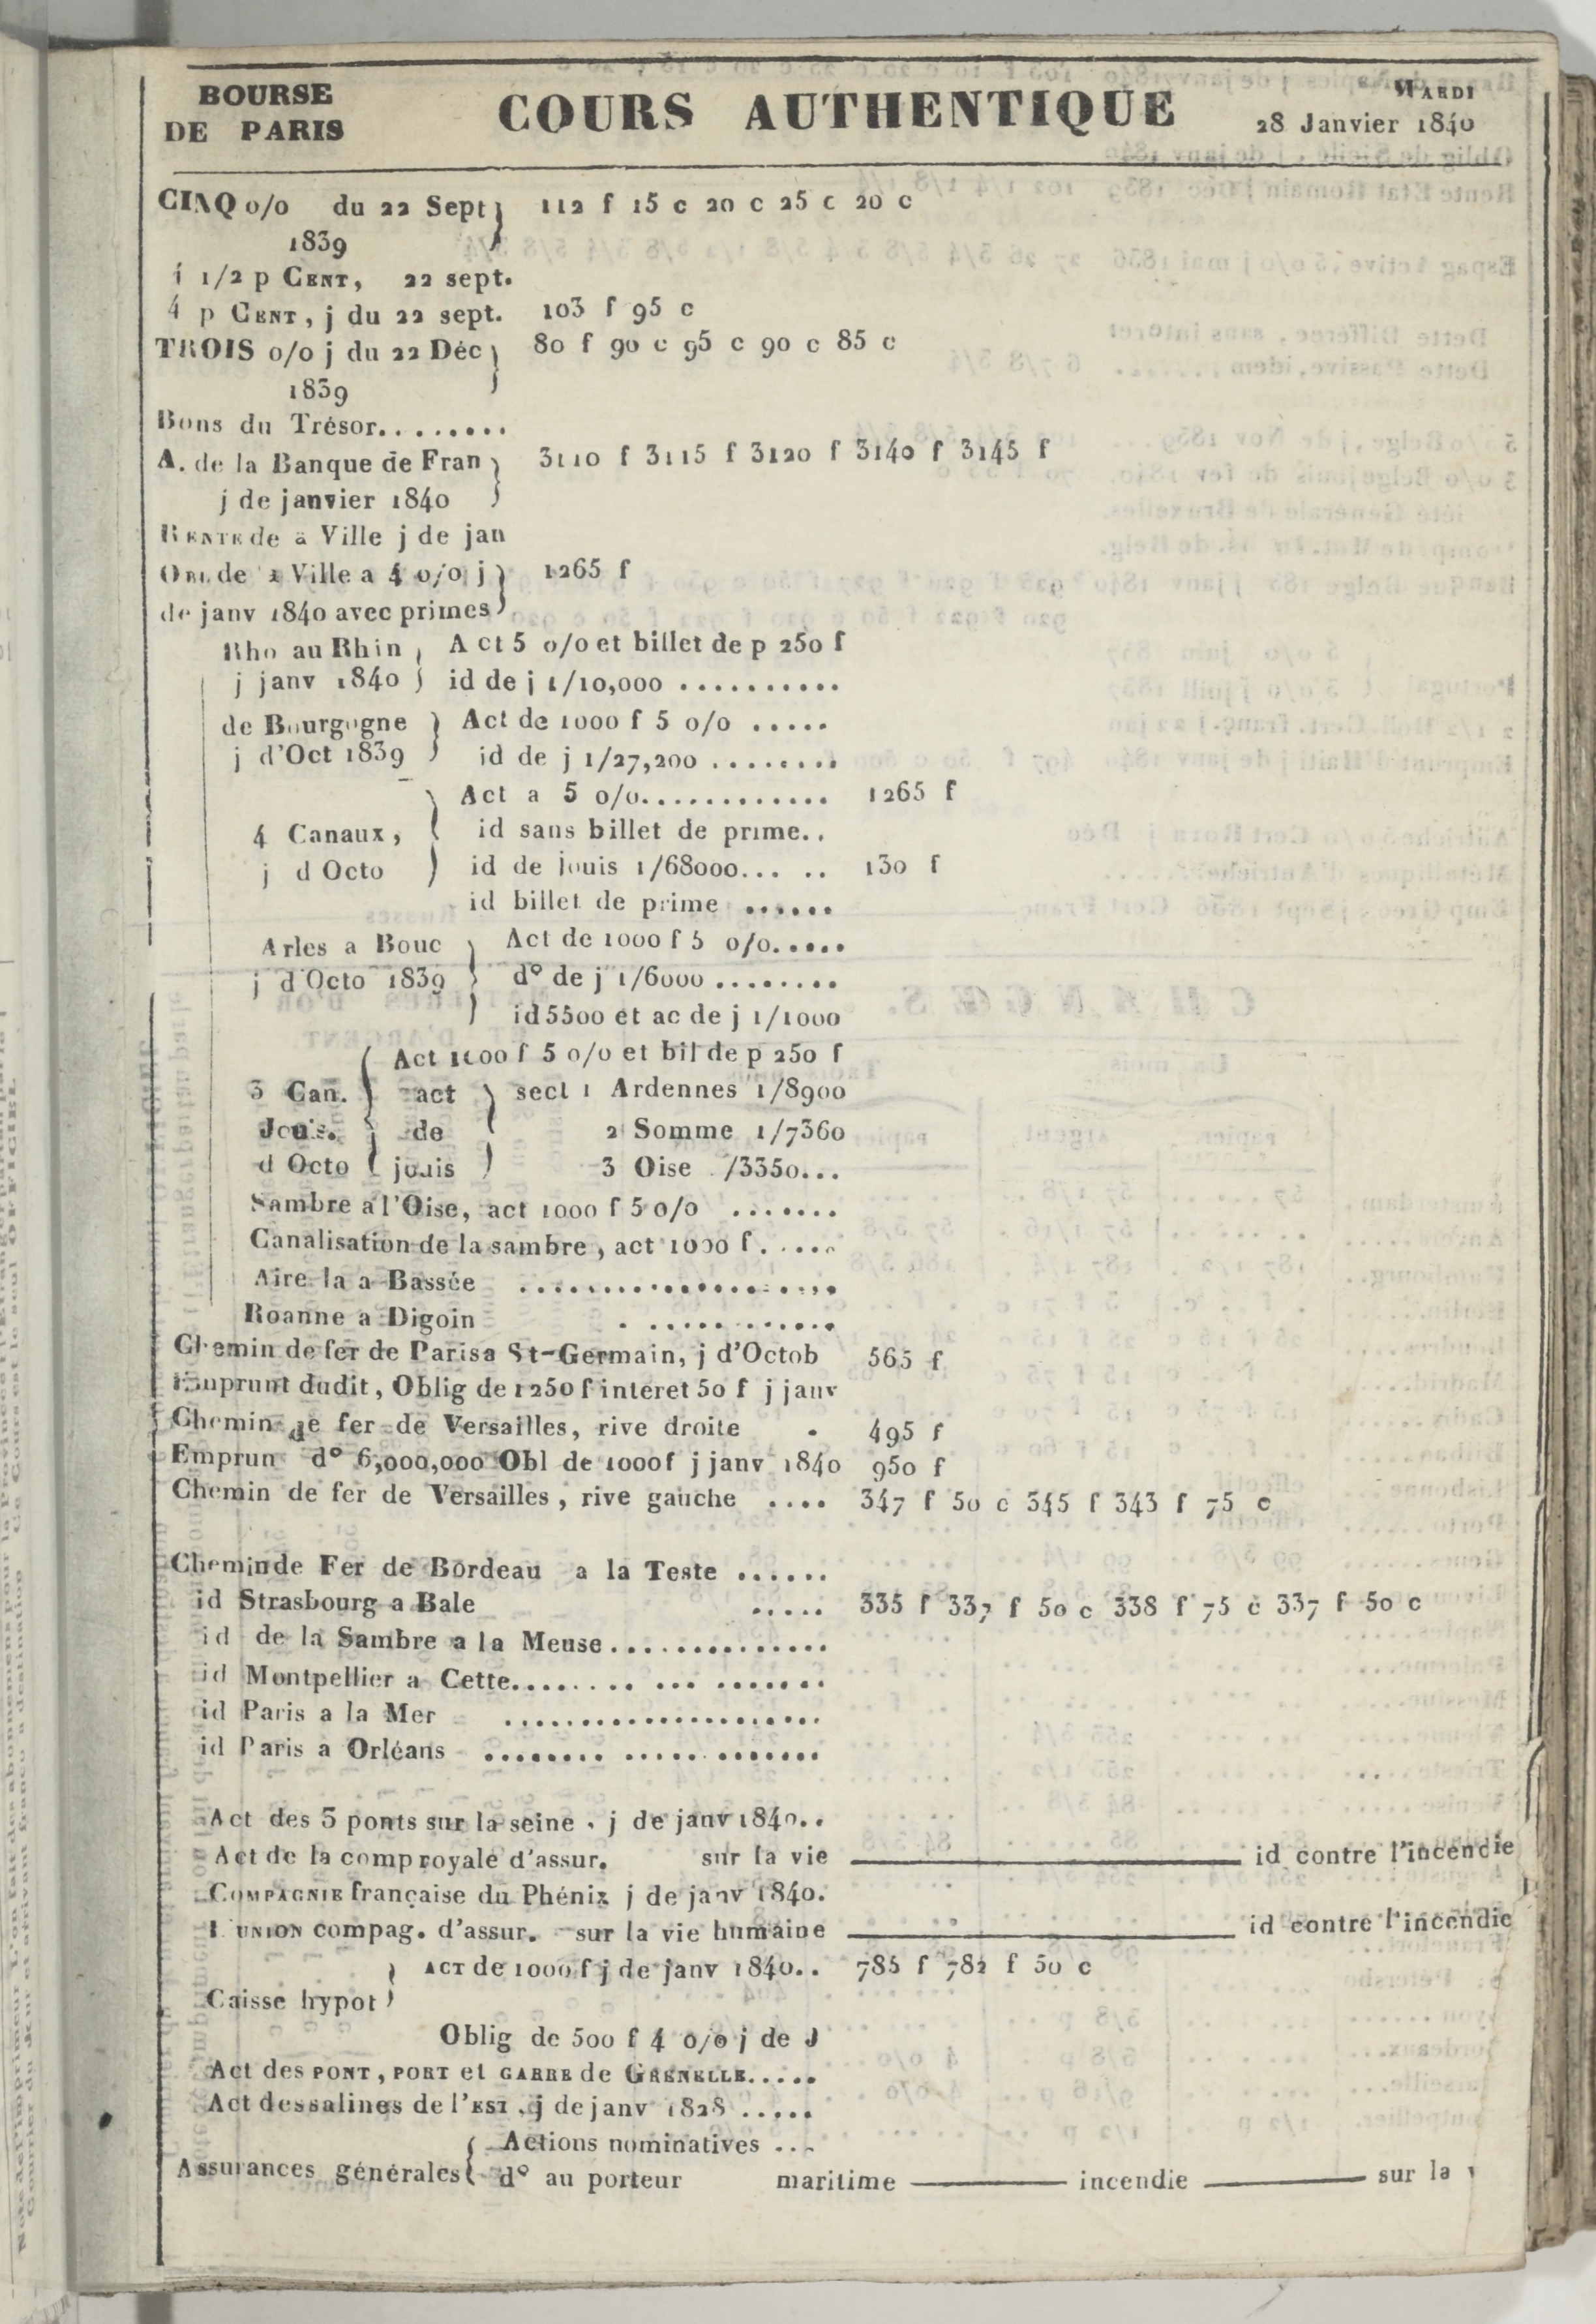 BOURSE
DE PARIS
COURS AUTHENTIQUE
MARDI
28 Janvier 1840
CINQ o/o du 22 Sept 112 f 15 c 20 c 25 c 20 c
1839
4 1/2 p CENT, 22 sept.
4 p CENT, j du 22 sept. 103 f 95 c
TROIS o/o j du 22 Déc 80 f 90 c 95 c 90 c 85 c
1839
Bons du Trésor........
A. de la Banque de Fran 3110 f 3115 f 3120 f 3140 f 3145 f
j de janvier 1840
RENTE de a Ville j de jan
OBL de a Ville a 4 o/o j 1265 f
de janv 1840 avec primes
Rho au Rhin Act 5 o/o et billet de p 250 f
j janv 1840 id de j 1/10,000 ..........
de Bourgogne Act de 1000 f 5 o/o .....
j d'Oct 1839 id de j 1/27,200 ........
Act a 5 o/o............. 1265 f
4 Canaux, id sans billet de prime..
j d Octo id de jouis 1/68000... .. 130 f
id billet de prime ......
Arles a Bouc Act de 1000 f 5 o/o.....
j d'Octo 1839 d° de j 1/6000 ........
id 5500 et ac de j 1/1000
Act 1000 f 5 o/o et bil de p 250 f
3 Can. act sect 1 Ardennes 1/8900
Jouis. de 2 Somme 1/7360
d Octo jouis 3 Oise /3350...
Sambre a l'Oise, act 1000 f 5 o/o .......
Canalisation de la sambre, act 1000 f.....
Aire la a Bassée ...................
Roanne a Digoin . ...........
Chemin de fer de Paris a St-Germain, j d'Octob 565 f
Emprunt dudit, Oblig de 1250 f interet 50 f j janv
Chemin de fer de Versailles, rive droite . 495 f
Emprun d° 6,000,000 Obl de 1000f j janv 1840 950 f
Chemin de fer de Versailles, rive gauche .... 347 f 50 c 345 f 343 f 75 c
Chemin de Fer de Bordeau a la Teste ......
id Strasbourg a Bale ..... 335 f 337 f 50 c 338 f 75 c 337 f 50 c
id de la Sambre a la Meuse..............
id Montpellier a Cette........ ... .......
id Paris a la Mer ....................
id Paris a Orléans ........ ..... .......
Act des 3 ponts sur la seine, j de janv 1840..
Act de la comp royale d'assur. sur la vie ——— id contre l'incendie
COMPAGNIE française du Phénix j de janv 1840.
L'UNION compag. d'assur. sur la vie humaine ——— id contre l'incendie
ACT de 1000 f j de janv 1840.. 785 f 782 f 50 c
Caisse hypot
Oblig de 500 f 4 o/o j de J
Act des PONT, PORT et GARRE de GRENELLE.....
Act des salines de l'EST, j de janv 1828 .....
Actions nominatives ...
Assurances générales d° au porteur maritime ——— incendie ——— sur la